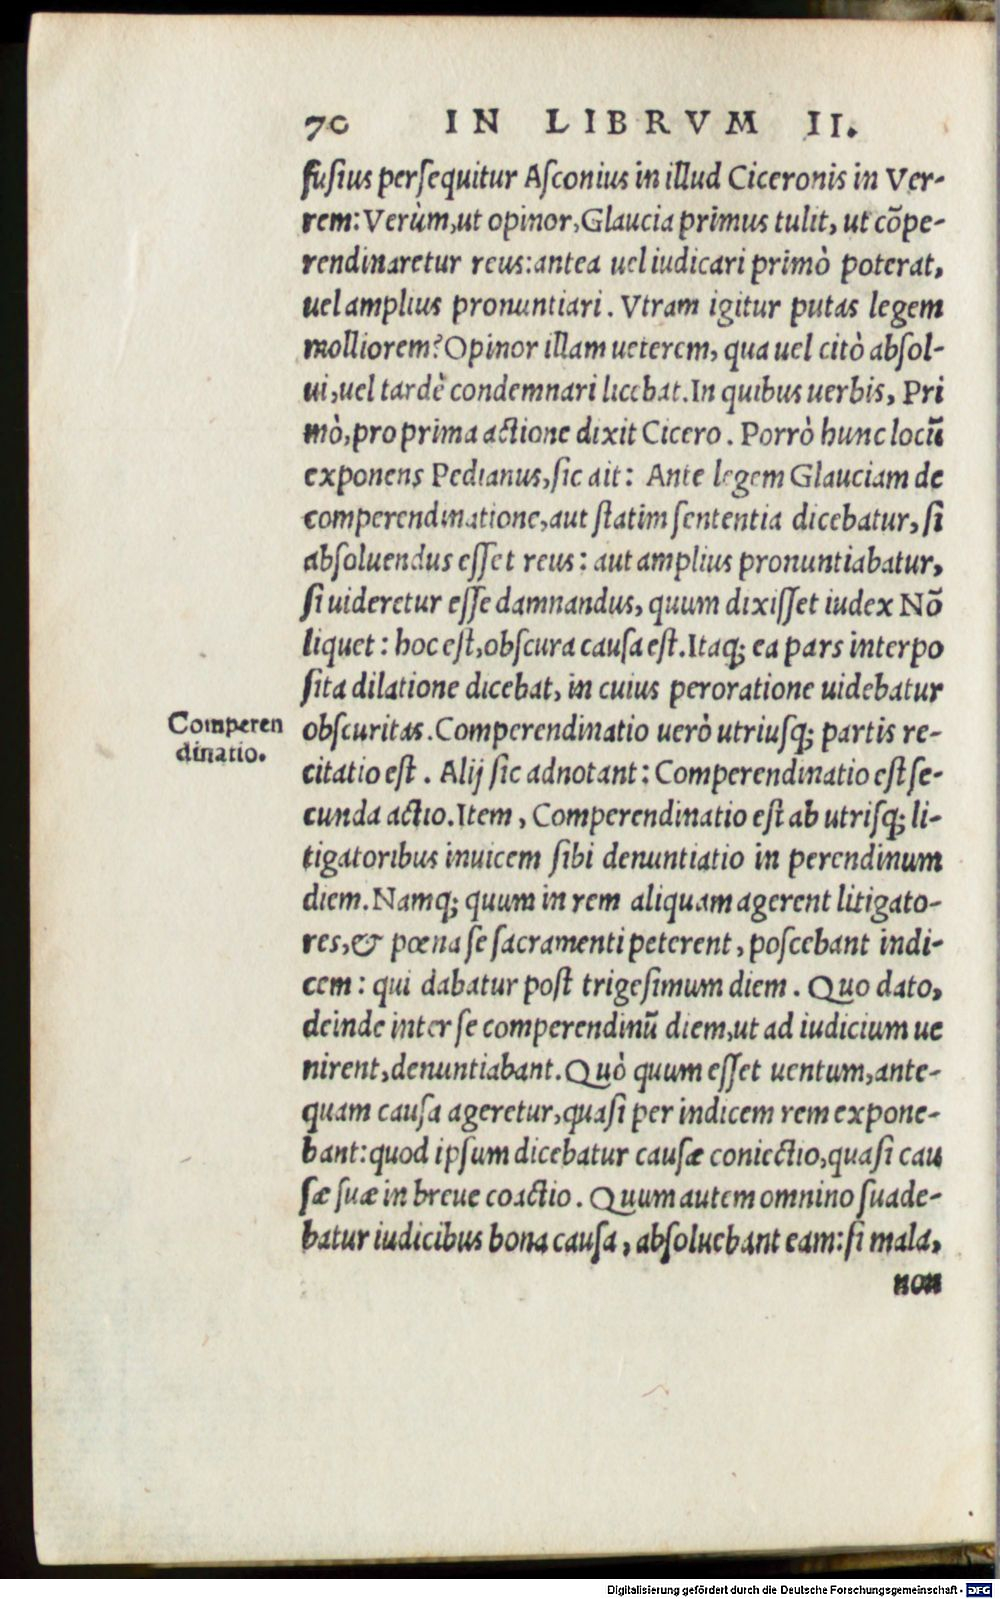 70 IN LIBRVM II.
fusius persequitur Asconius in illud Ciceronis in Ver-
rem: Verùm, ut opinor, Glaucia primus tulit, ut cõpe-
rendinaretur reus: antea uel iudicari primò poterat,
uel amplius pronuntiari. Vtram igitur putas legem
molliorem? Opinor illam ueterem, qua uel citò absol-
ui, uel tardè condemnari licebat. In quibus uerbis, Pri
mò, pro prima actione dixit Cicero. Porrò hunc locũ
exponens Pedianus, sic ait: Ante legem Glauciam de
comperendinatione, aut statim sententia dicebatur, si
absoluendus esset reus: aut amplius pronuntiabatur,
si uideretur esse damnandus, quum dixisset iudex Nõ
liquet: hoc est, obscura causa est. Itaq; ea pars interpo
sita dilatione dicebat, in cuius peroratione uidebatur
Comperen
dinatio.
obscuritas. Comperendinatio uerò utriusq; partis re-
citatio est. Alij sic adnotant: Comperendinatio est se-
cunda actio. Item, Comperendinatio est ab utrisq; li-
tigatoribus inuicem sibi denuntiatio in perendinum
diem. Namq; quum in rem aliquam agerent litigato-
res, & pœna se sacramenti peterent, poscebant indi-
cem: qui dabatur post trigesimum diem. Quo dato,
deinde inter se comperendinũ diem, ut ad iudicium ue
nirent, denuntiabant. Quò quum esset uentum, ante-
quam causa ageretur, quasi per indicem rem expone-
bant: quod ipsum dicebatur causæ coniectio, quasi cau
sæ suæ in breue coactio. Quum autem omnino suade-
batur iudicibus bona causa, absoluebant eam: si mala,
non
Digitalisierung gefördert durch die Deutsche Forschungsgemeinschaft - DFG